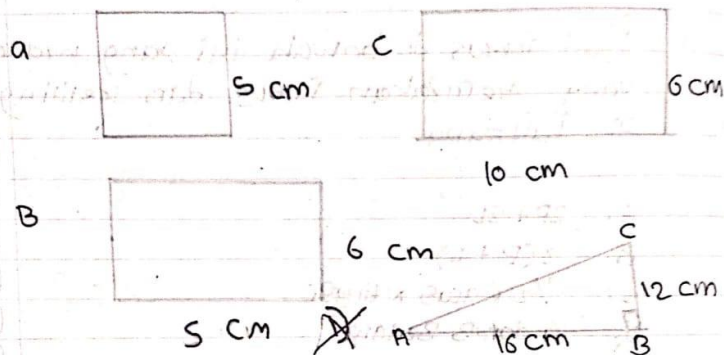 a
5 cm
C
6 cm
10 cm
B
6 cm
5 cm
C
12 cm
A
16 cm
B